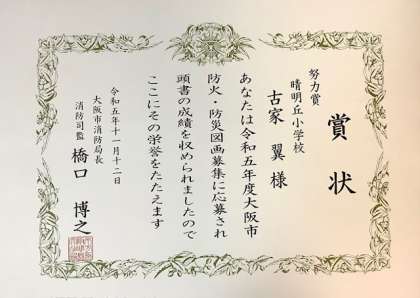 賞状
努力賞
晴明丘小学校
古家 翼 様
あなたは令和五年度大阪市
防火・防災図画募集に応募され
頭書の成績を収められましたので
ここにその栄誉をたたえます
令和五年十一月十二日
大阪市消防局長
消防司監 橋口 博之